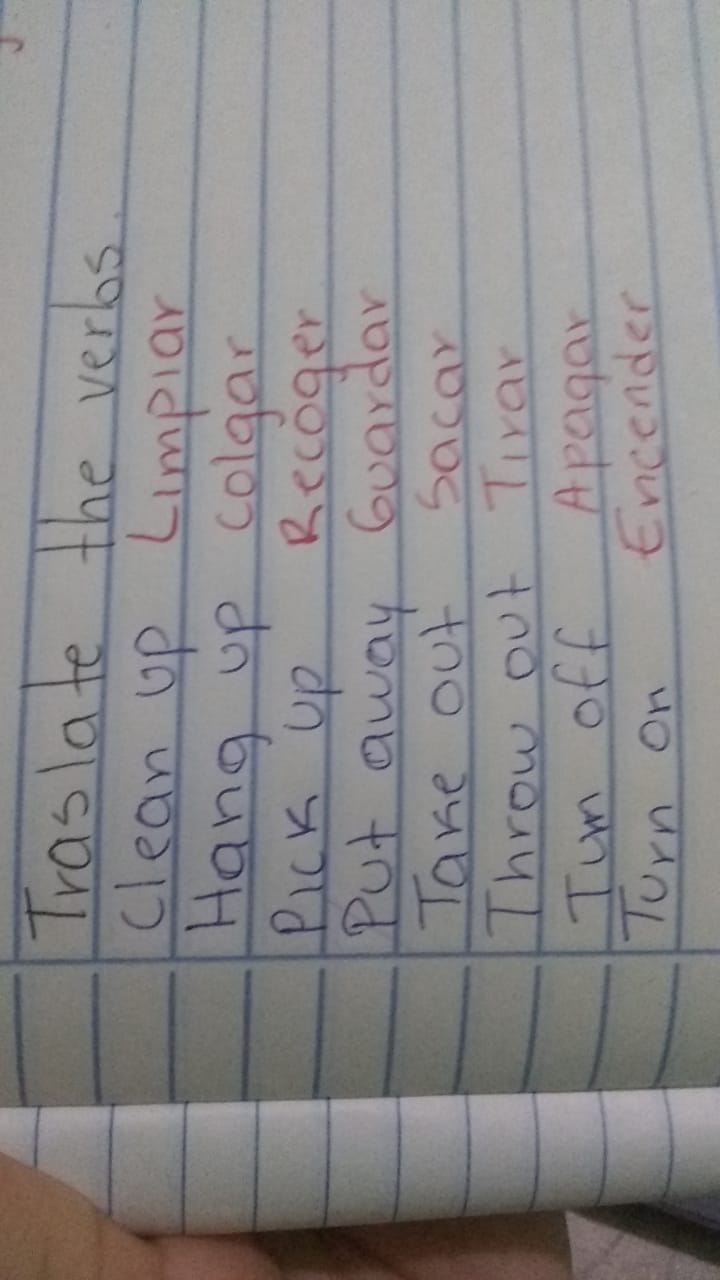 Traslate the verbs.
Clean up Limpiar
Hang up colgar
Pick up Recoger
Put away Guardar
Take out Sacar
Throw out Tirar
Turn off Apagar
Turn on Encender